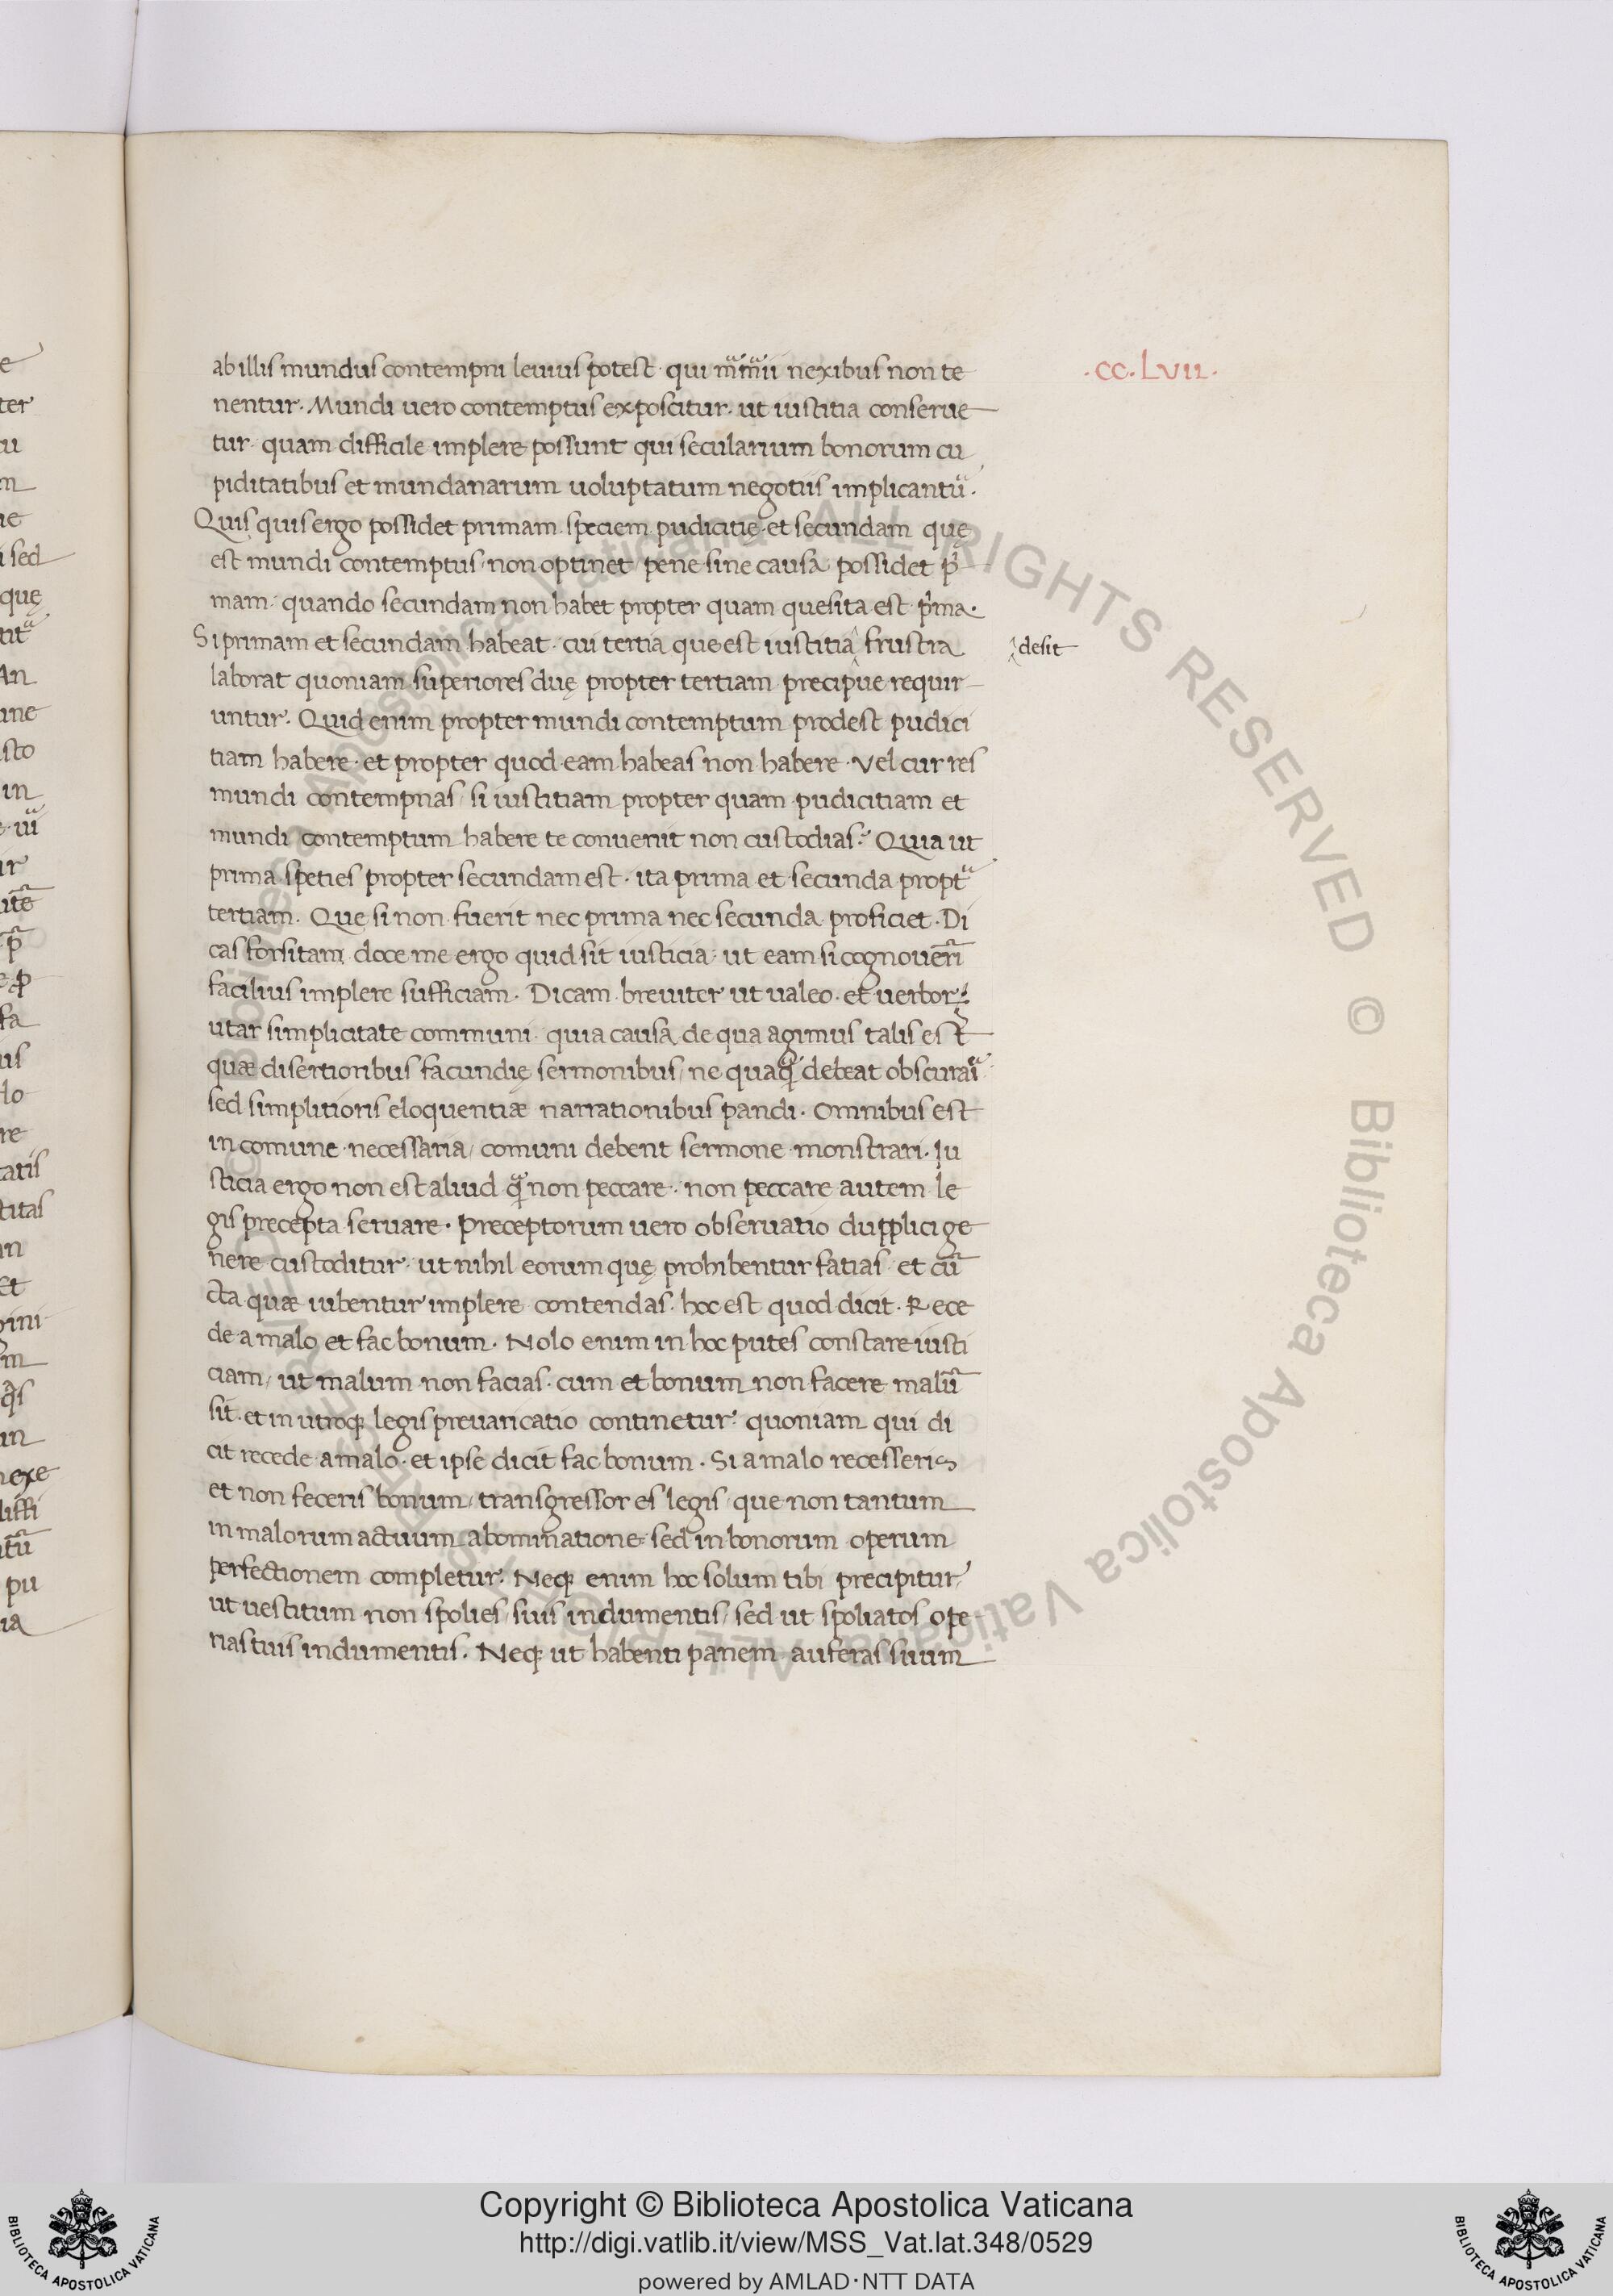 ab illis mundus contempni leuius potest · qui m̃ïm̃ïi nexibus non te
nentur · Mundi uero contemptus exposcitur · ut iustitia conserue
tur · quam difficile implere possunt qui secularium bonorum cu
piditatibus et mundanarum uoluptatum negotiis implicantu᷑ ·
Quis quis ergo possidet primam speciem pudicitię · et secundam quę
est mundi contemptus · non optinet pene sine causa possidet p̍
mam · quando secundam non habet propter quam quesita est p̍ma ·
Si primam et secundam habeat · cui tertia que est iustitia ^ frustra
^ desit
laborat quoniam superiores duę propter tertiam precipue requir
untur · Quid enim propter mundi contemptum prodest pudici
tiam habere · et propter quod eam habeas non habere · Vel cur res
mundi contempnas / si iustitiam propter quam pudicitiam et
mundi contemptum habere te conuenit non custodias? Quia ut
prima speties propter secundam est · ita prima et secunda propt᷑
tertiam · Que si non fuerit nec prima nec secunda proficiet · Di
cas forsitam doce me ergo quid sit iusticia · ut eam si cognoueri̅
facilius implere sufficiam · Dicam breuiter ut ualeo · et uerborꝝ
utar simplicitate communi · quia causa de qua agimus talis est
quæ disertioribus facundię sermonibus / ne quaq̃ debeat obscurari ·
sed simplitioris eloquentiæ narrationibus pandi · Omnibus est
in comune necessaria / comuni debent sermone monstrari · Iu
sticia ergo non est aliud q̃ non peccare · non peccare autem le
gis precepta seruare · Preceptorum uero obseruatio dupplici ge
nere custoditur · ut nihil eorum quę prohibentur fatias · et cū
cta quæ iubentur implere contendas · hoc est quod dicit · Rece
de a malo et fac bonum · Nolo enim in hoc putes constare iusti
ciam / ut malum non facias · cum et bonum non facere malū
sit · et in utroqꝫ legis preuaricatio continetur · quoniam qui di
cit recede a malo · et ipse dicit fac bonum · Si a malo recesseris
et non feceris bonum / transgressor es legis / que non tantum
in malorum actuum abominatione · sed in bonorum operum
perfectionem completur · Neqꝫ enim hoc solum tibi precipitur /
ut uestitum non spolies / suis indumentis / sed ut spoliatos ope
rias tuis indumentis · Neqꝫ ut habenti panem auferas suum
· CC · LVII ·
e
ter
cu
m
ue
i sed
quę
tit᷑
An
une
sto
in
ir
p̄
fa
us
lo
re
tatis
titas
in
et
gini
m
in
nexe
diffi
pu
ia
© Biblioteca Apostolica Vaticana ALL RIGHTS RESERVED © Biblioteca Apostolica Vaticana ALL RIGHTS RESERVED
Copyright © Biblioteca Apostolica Vaticana
http://digi.vatlib.it/view/MSS_Vat.lat.348/0529
powered by AMLAD·NTT DATA
BIBLIOTECA APOSTOLICA VATICANA
BIBLIOTECA APOSTOLICA VATICANA